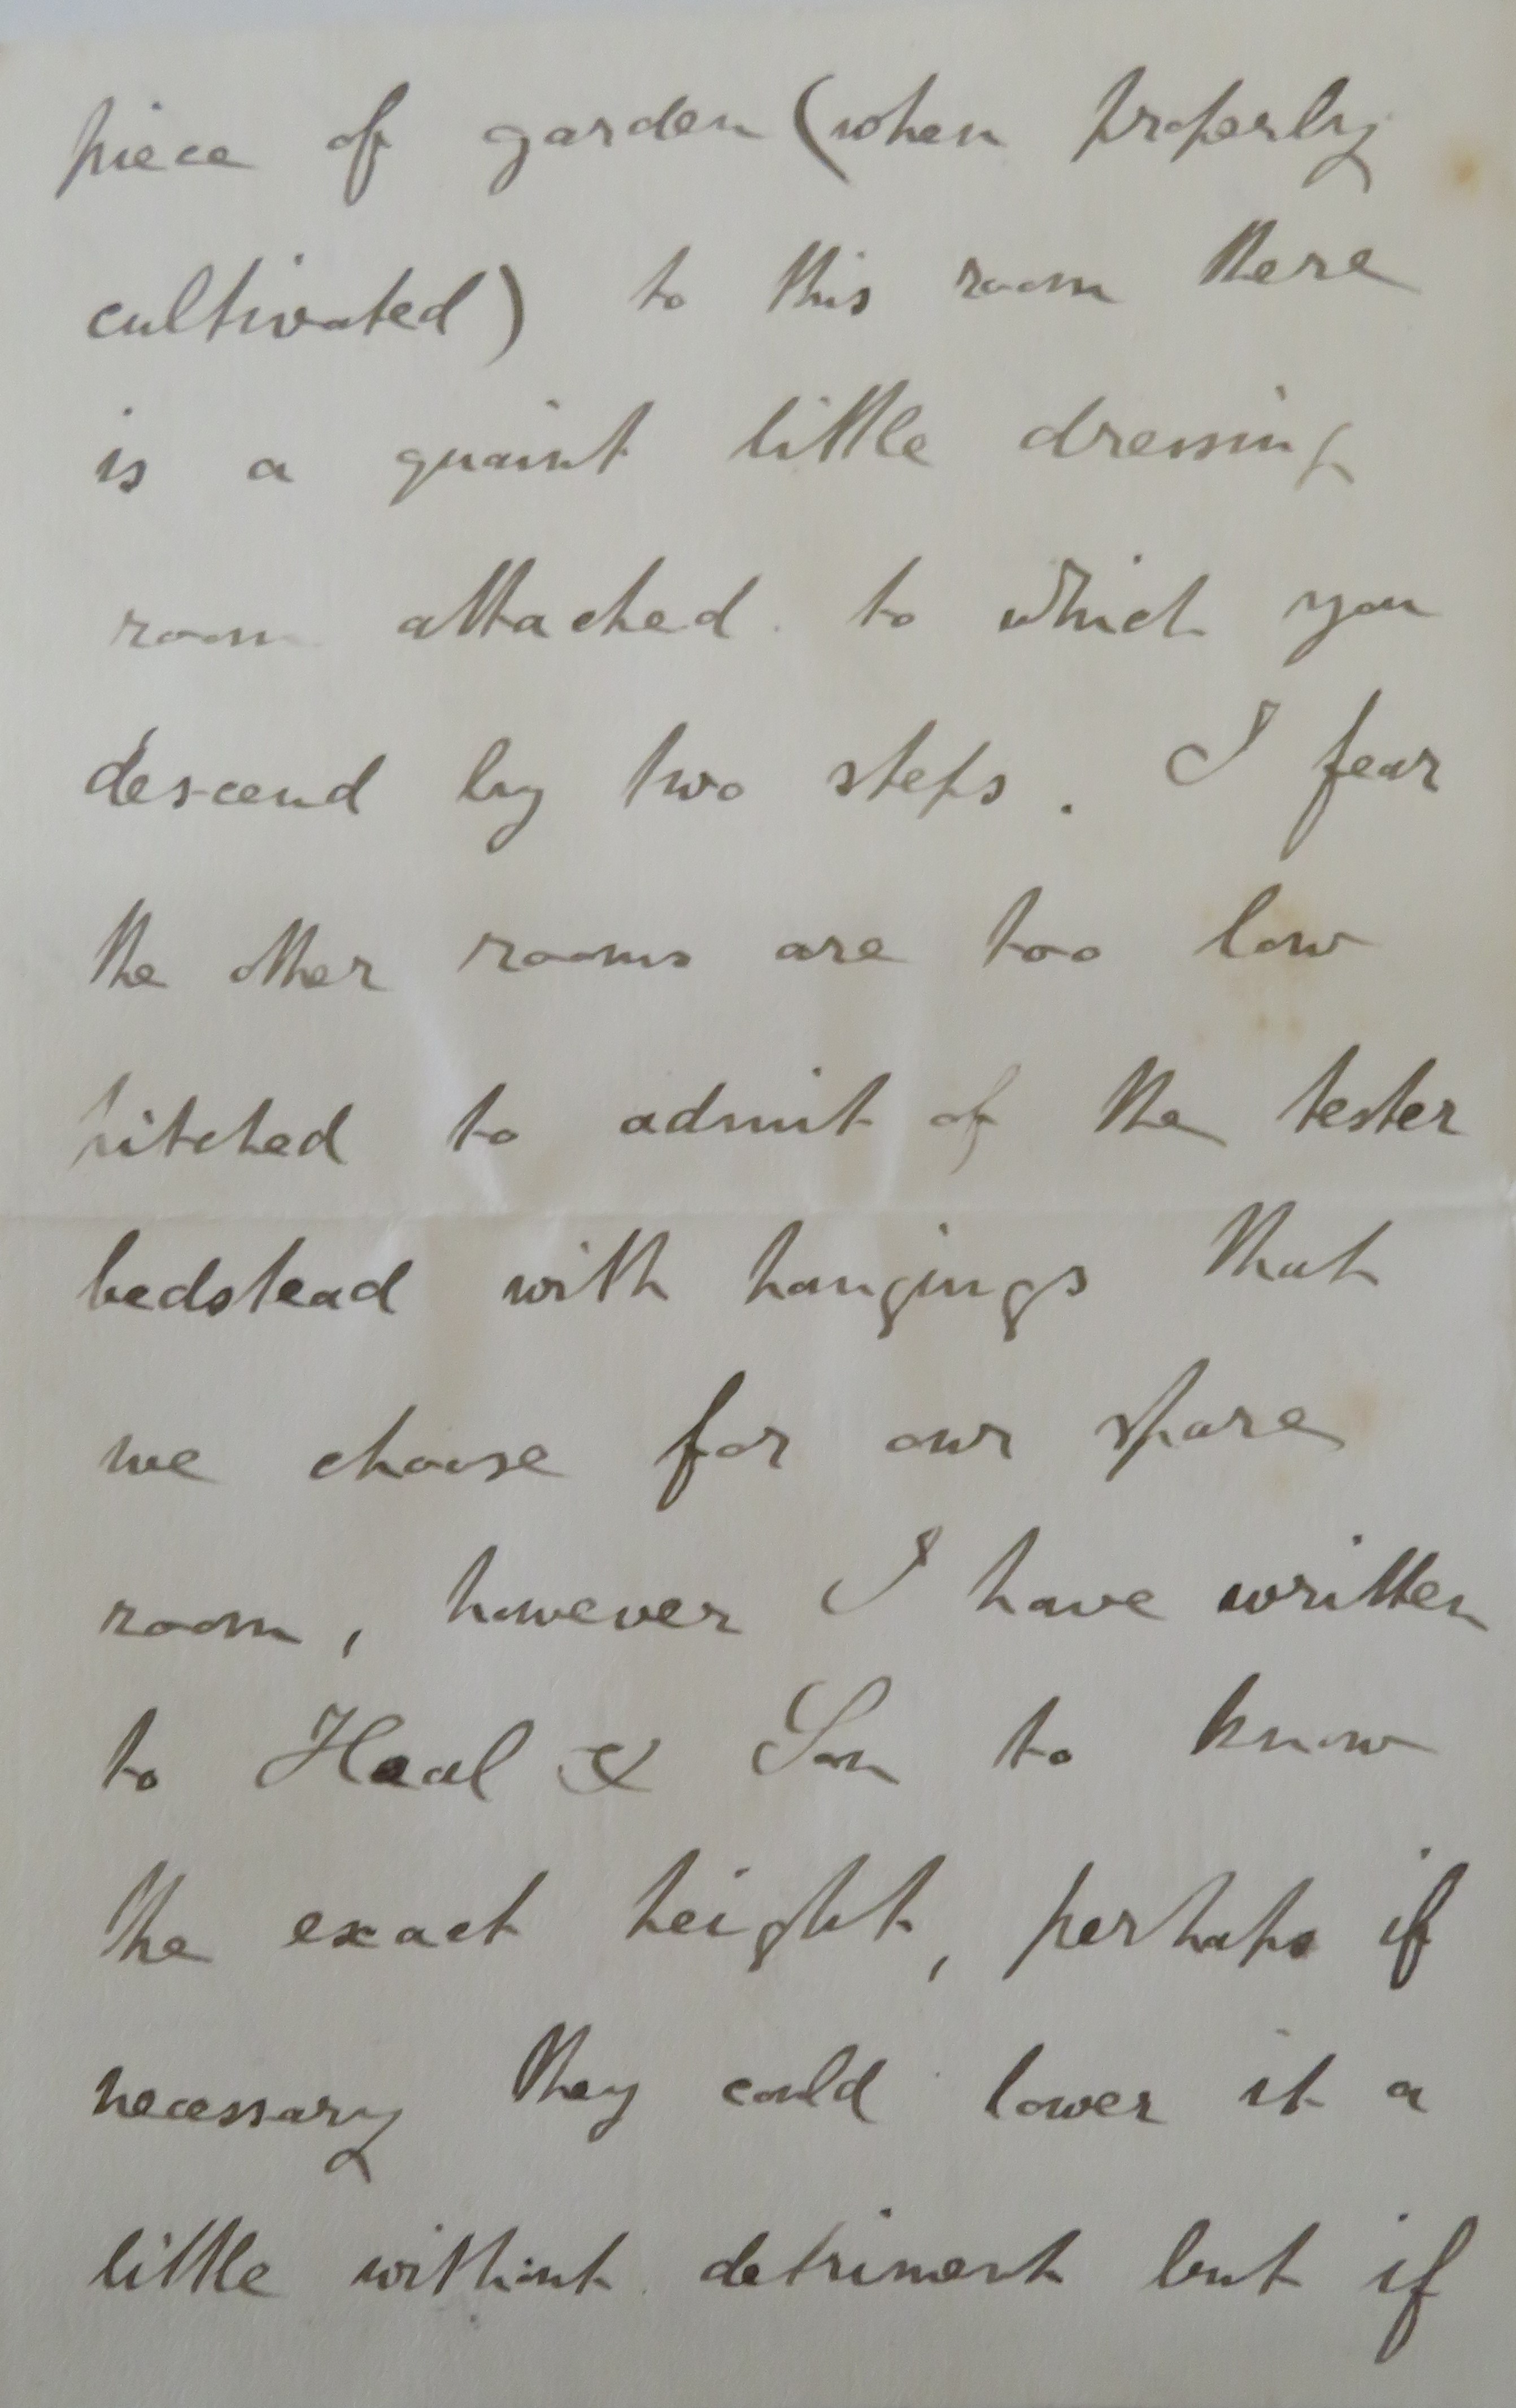 piece of garden (when properly
cultivated) to this room there
is a quaint little dressing
room attached to which you
descend by two steps. I fear
the other rooms are too low
pitched to admit of the tester
bedstead with hangings that
we choose for our spare
room, however I have written
to Heal & Son to know
the exact height, perhaps if
necessary they could lower it a
little without detriment but if